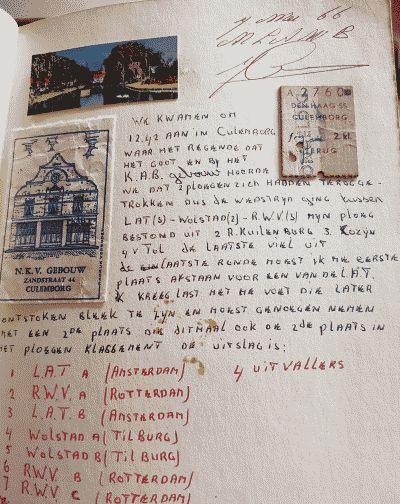 7 Mei 66
A 2760
DEN HAAG SS
CULEMBORG
2 kl.
TERUG
WE KWAMEN OM
12.42 AAN IN CULEMBORG
WAAR HET REGENDE DAT
HET GOOT EN BY HET
K.A.B. gebouw HOORDE
WE DAT 2 PLOEGEN ZICH HADDEN TERUGGE-
TROKKEN DUS DE WEDSTRYN GING tussen
LAT(3) - WOLSTAD(2) - R.W.V(3) MYN PLOEG
BESTOND UIT 2 R.KUILENBURG 3. KOZYN
4 V TOL DE LAATSTE VIEL UIT
de LAATSTE RONDE MOEST IK ME EERSTE
PLAATS AFSTAAN VOOR EEN VAN DE L.A.T.
IK KREEG LAST MET ME VOET DIE LATER
ONTSTOKEN BLEEK TE ZYN EN MOEST GENOEGEN NEMEN
MET EEN 2de PLAATS DIE DITMAAL OOK DE 2de PLAATS IN
HET PLOEGEN KLASSEMENT DE UITSLAG IS:
N.K.V. GEBOUW
ZANDSTRAAT 44
CULEMBORG
1 L.A.T. A (AMSTERDAM)
2 R.W.V. A (ROTTERDAM)
3 L.A.T. B (AMSTERDAM)
4 WOLSTAD A (TILBURG)
5 WOLSTAD B (TILBURG)
6 RWV. B (ROTTERDAM)
7 RWV. C (ROTTERDAM)
4 UITVALLERS